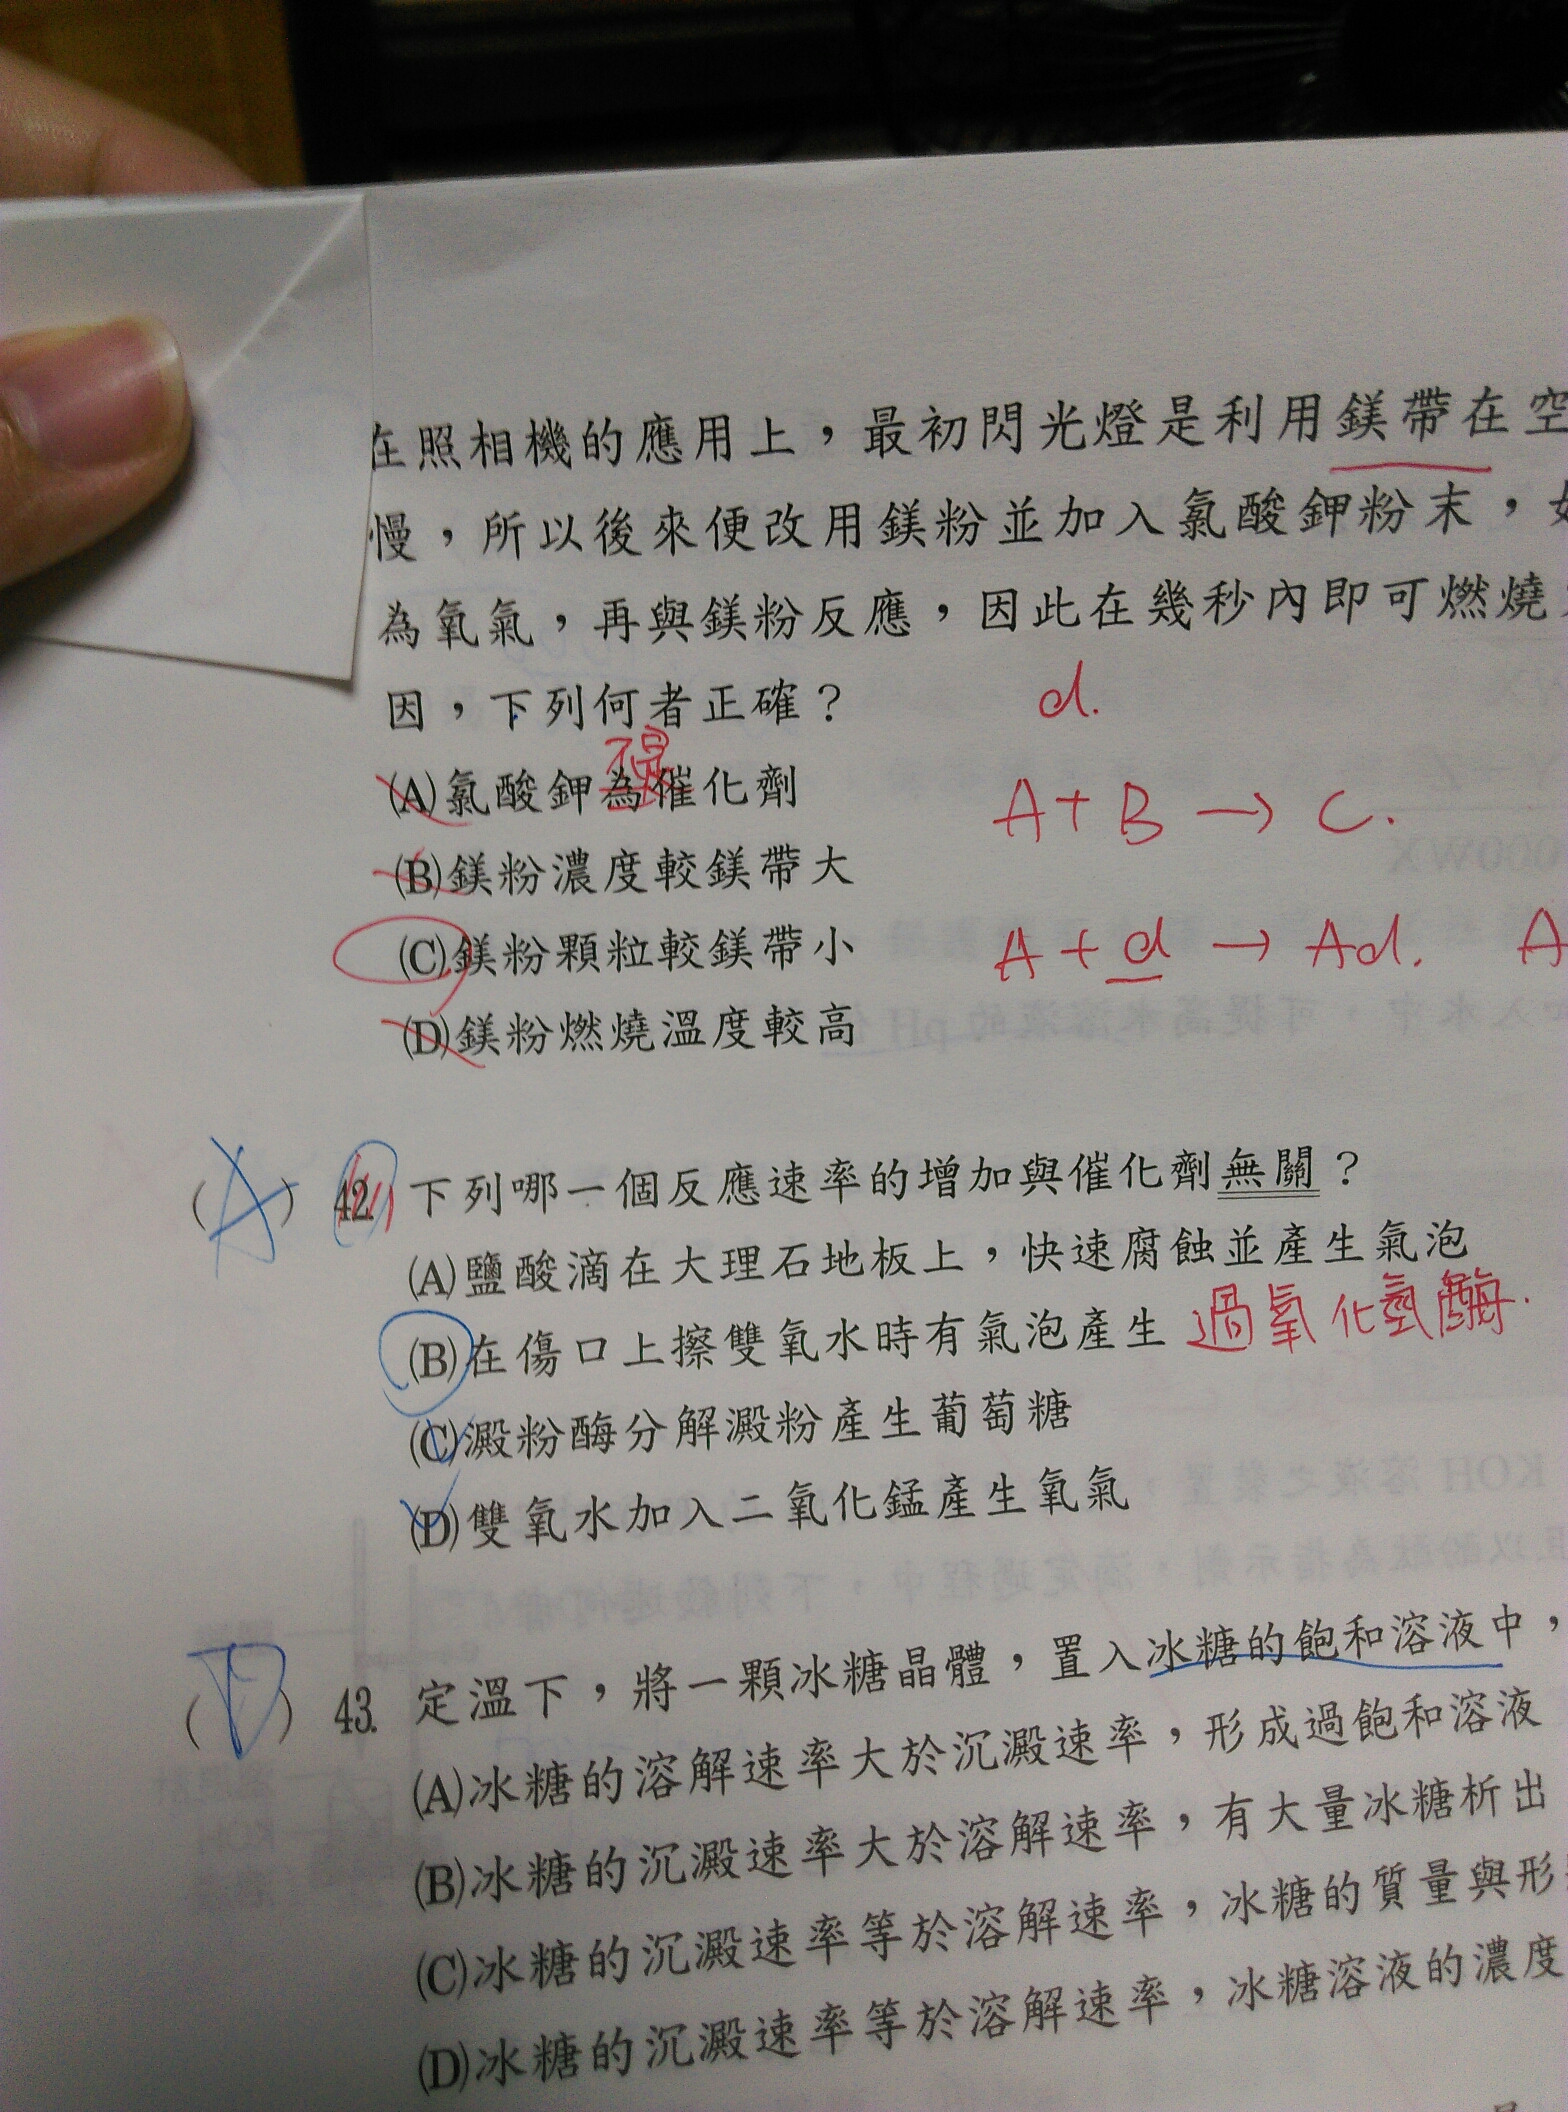 在照相機的應用上，最初閃光燈是利用鎂帶在空
慢，所以後來便改用鎂粉並加入氯酸鉀粉末，
為氧氣，再與鎂粉反應，因此在幾秒內即可燃燒
因，下列何者正確？
d.
不是
(A)氯酸鉀為催化劑
A+B→C.
(B)鎂粉濃度較鎂帶大
(C)鎂粉顆粒較鎂帶小
A+d→Ad. A
(D)鎂粉燃燒溫度較高
(A) 42. 下列哪一個反應速率的增加與催化劑無關？
(A)鹽酸滴在大理石地板上，快速腐蝕並產生氣泡
(B)在傷口上擦雙氧水時有氣泡產生 過氧化氫酶.
(C)澱粉酶分解澱粉產生葡萄糖
(D)雙氧水加入二氧化錳產生氧氣
(D) 43. 定溫下，將一顆冰糖晶體，置入冰糖的飽和溶液中，
(A)冰糖的溶解速率大於沉澱速率，形成過飽和溶液
(B)冰糖的沉澱速率大於溶解速率，有大量冰糖析出
(C)冰糖的沉澱速率等於溶解速率，冰糖的質量與形
(D)冰糖的沉澱速率等於溶解速率，冰糖溶液的濃度